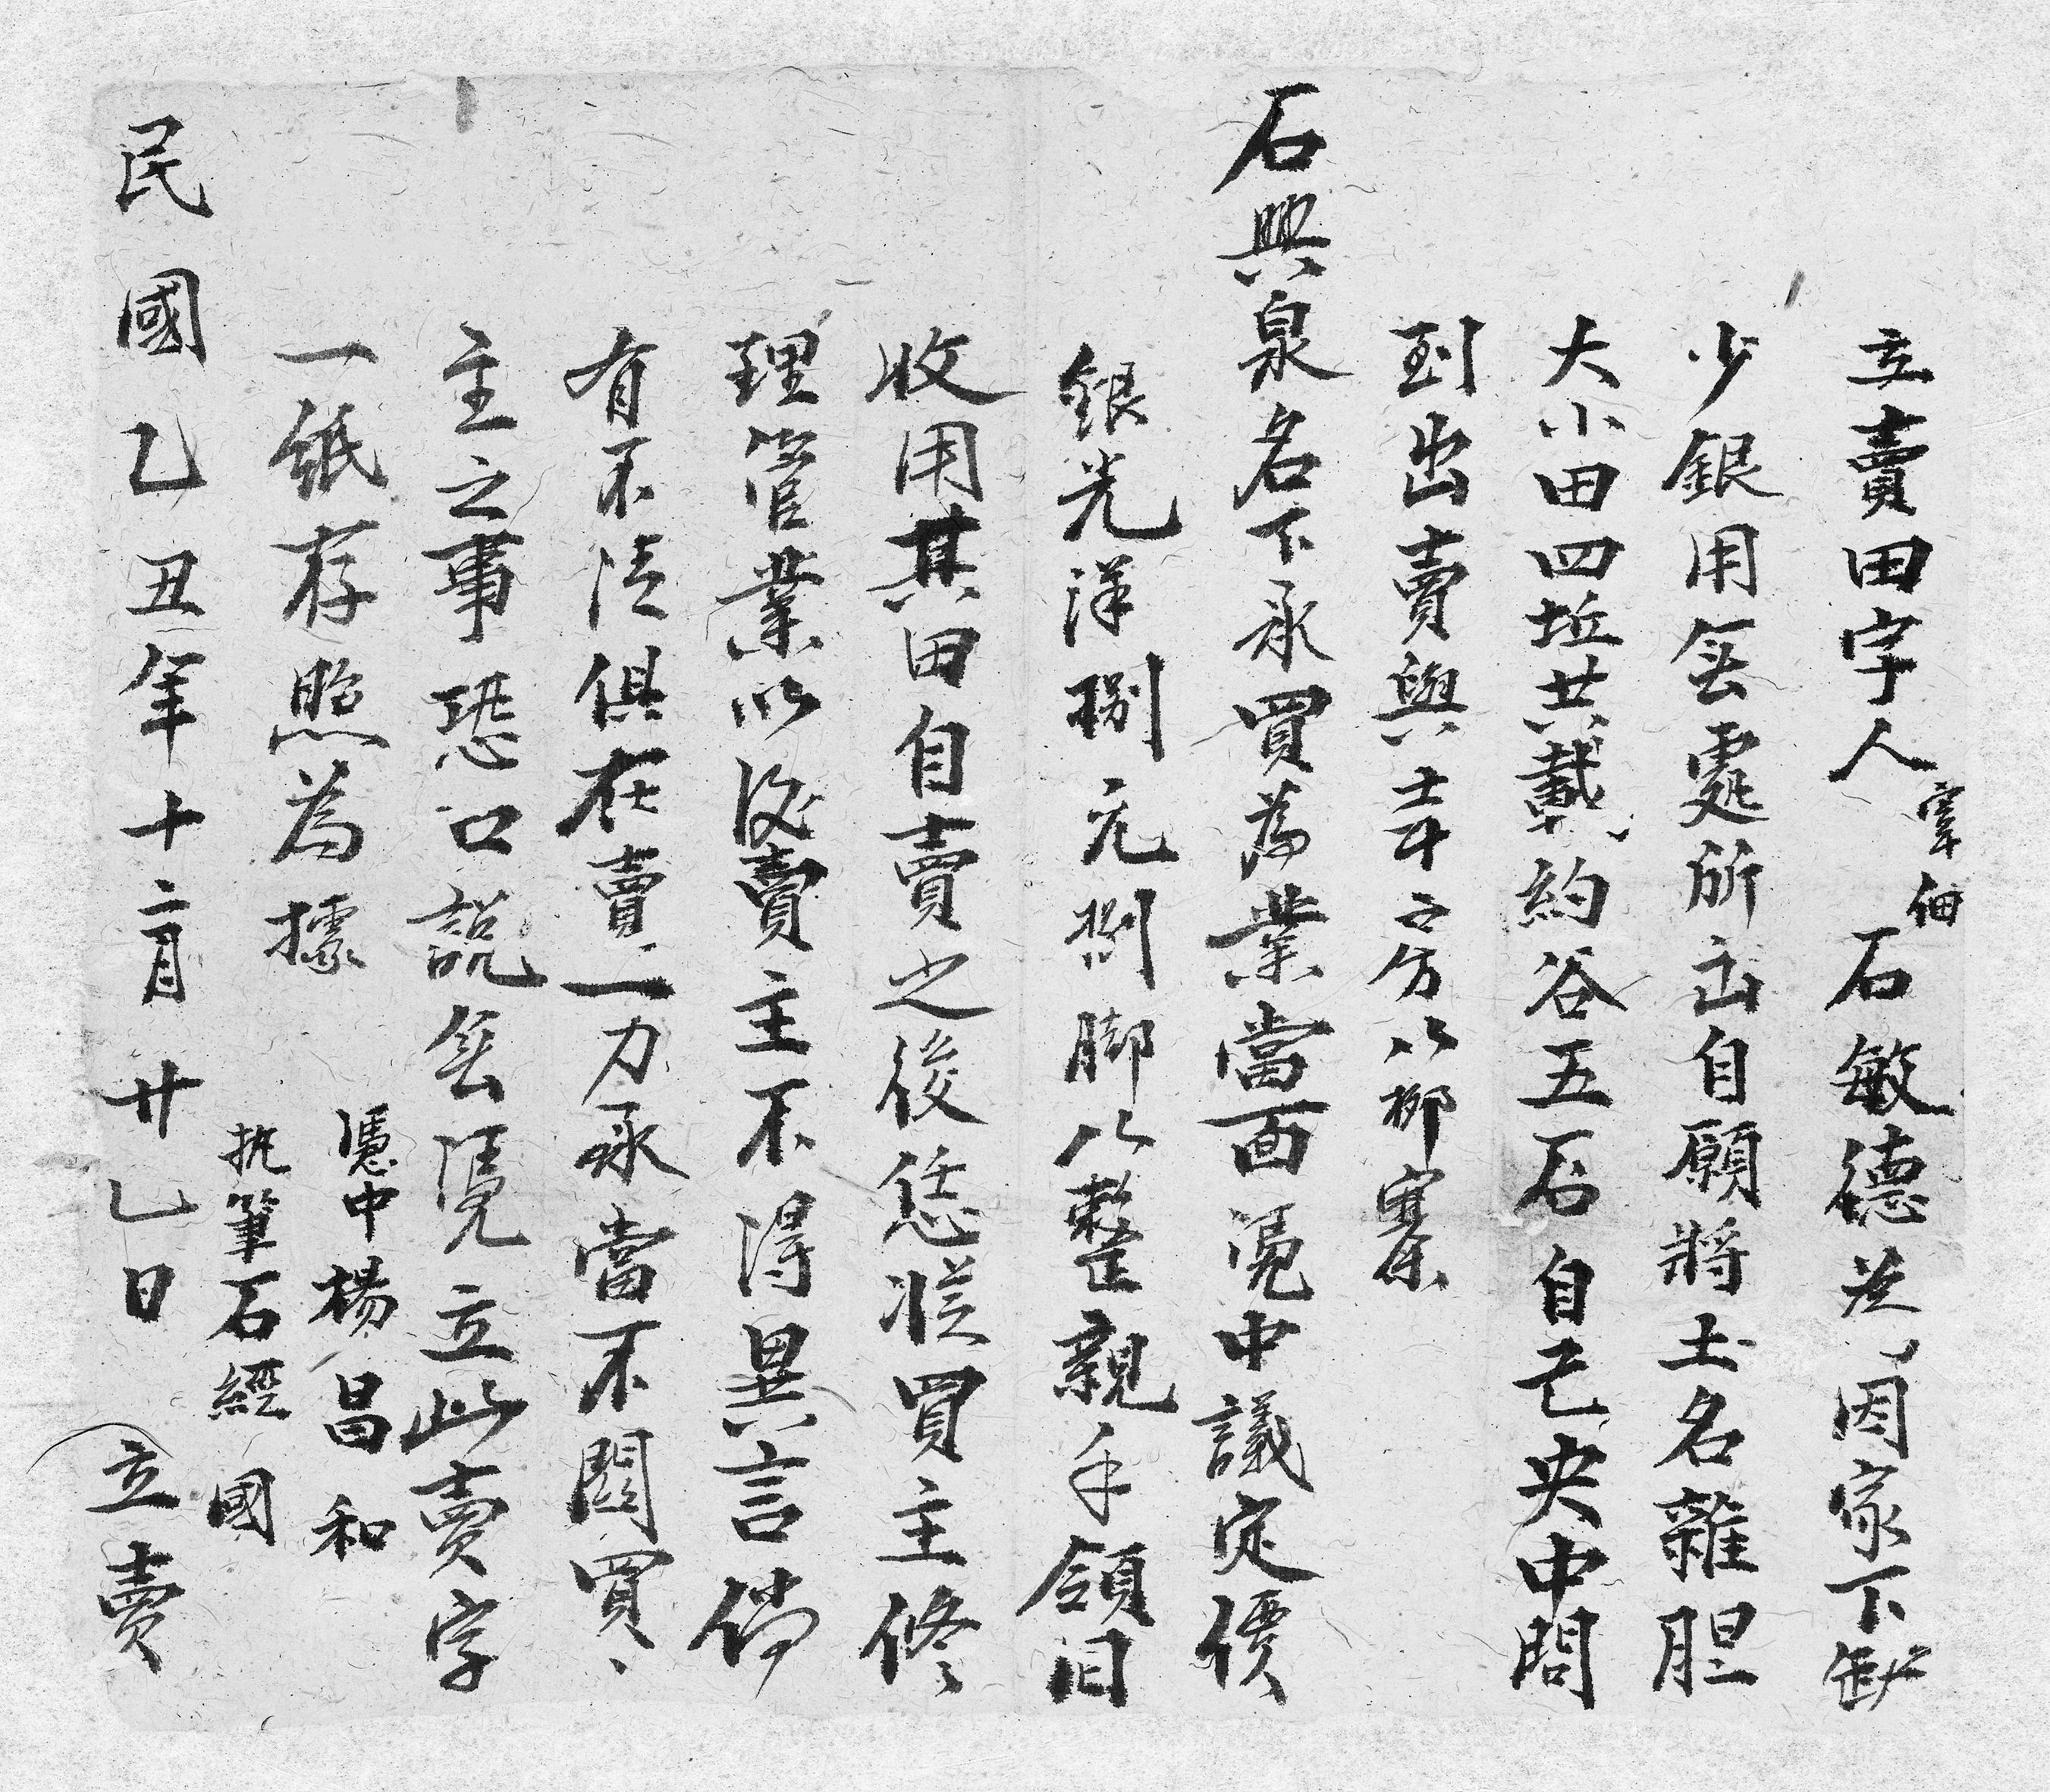 立賣田字人 石敏德 為因家下缺
少銀用無處所出自願將土名雜胆
大小田四坵共載約谷五石自己央中問
到出賣與 房以柳寨
石興泉名下承買為業當面憑中議定價
銀光洋捌元捌脚以整親手領回
收用其田自賣之後恁從買主修
理管業以後賣主不得異言倘
有不清俱在賣一力承當不関買、
主之事恐口說無憑立此賣字
一紙存照為據
憑中楊昌和
执筆石經國
民國乙丑年十二月廿乙日 立賣